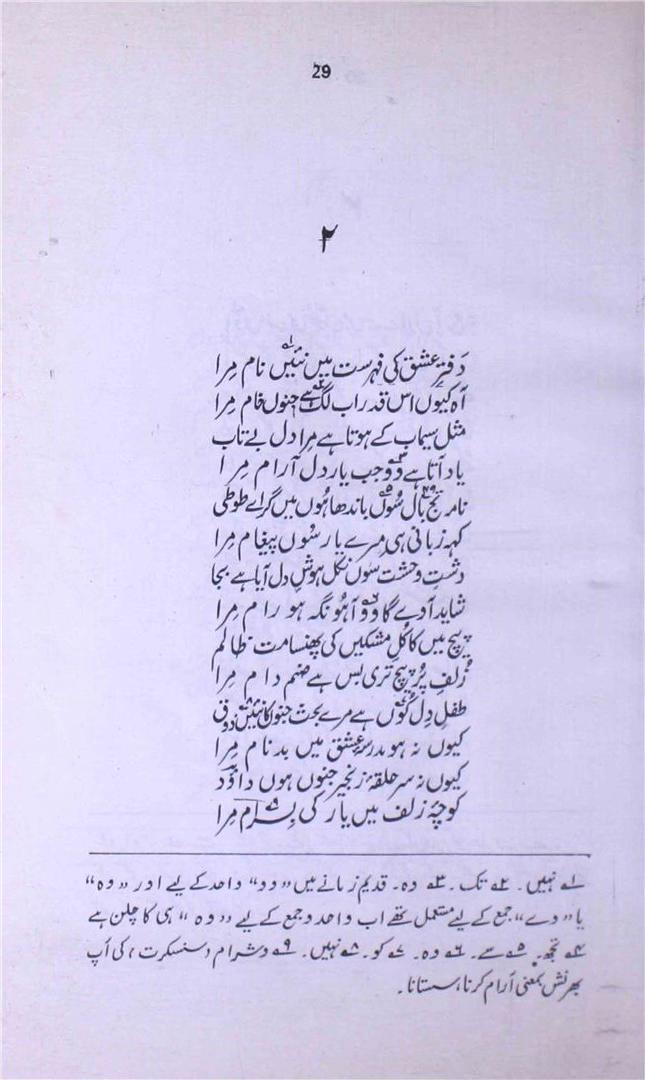 29
۲
دفترِ عشق کی فہرست میں نئیں۱؎ نام مِرا
آہ کیوں اس قدر اب لگ۲؎ ہے جنوں خام مِرا
مثل سیماب کے ہوتا ہے مِرا دل بے تاب
یاد آتا ہے وو۳؎ جب یار دل آرام مِرا
نامہ تج۴؎ بال سُوں۵؎ باندھا ہُوں میں گر اے طوطی
کہہ زبانی ہی مِرے یار سُوں پیغام مِرا
دشتِ وحشت سُوں نکل ہوشِ دل آیا ہے بجا
شاید آدے گا وو۶؎ آہو نگہ ہو رام مِرا
پیچ میں کاکُلِ مشکیں کی پھنسا مت ظالم
زُلفِ پُر پیچ تری بس ہے صنم دام مِرا
طفلِ دل کُوں۷؎ ہے مرے بحث جنوں کا نئیں۸؎ ذوق
کیوں نہ ہو مدرسۂ عشق میں بدنام مِرا
کیوں نہ سر حلقۂ زنجیرِ جنوں ہوں داؤد
کوچۂ زلف میں یار کی بِسرام۹؎ مِرا
۱؎ نہیں۔ ۲؎ تک۔ ۳؎ وہ۔ قدیم زمانے میں "وو" واحد کے لیے اور "وہ"
یا "وے" جمع کے لیے مستعمل تھے اب واحد و جمع کے لیے "وہ" ہی کا چلن ہے
۴؎ تجھ۔ ۵؎ سے۔ ۶؎ وہ۔ ۷؎ کو۔ ۸؎ نہیں۔ ۹؎ وشرام (سنسکرت) کی اَپ
بھرنش بمعنی آرام کرنا، سستانا۔